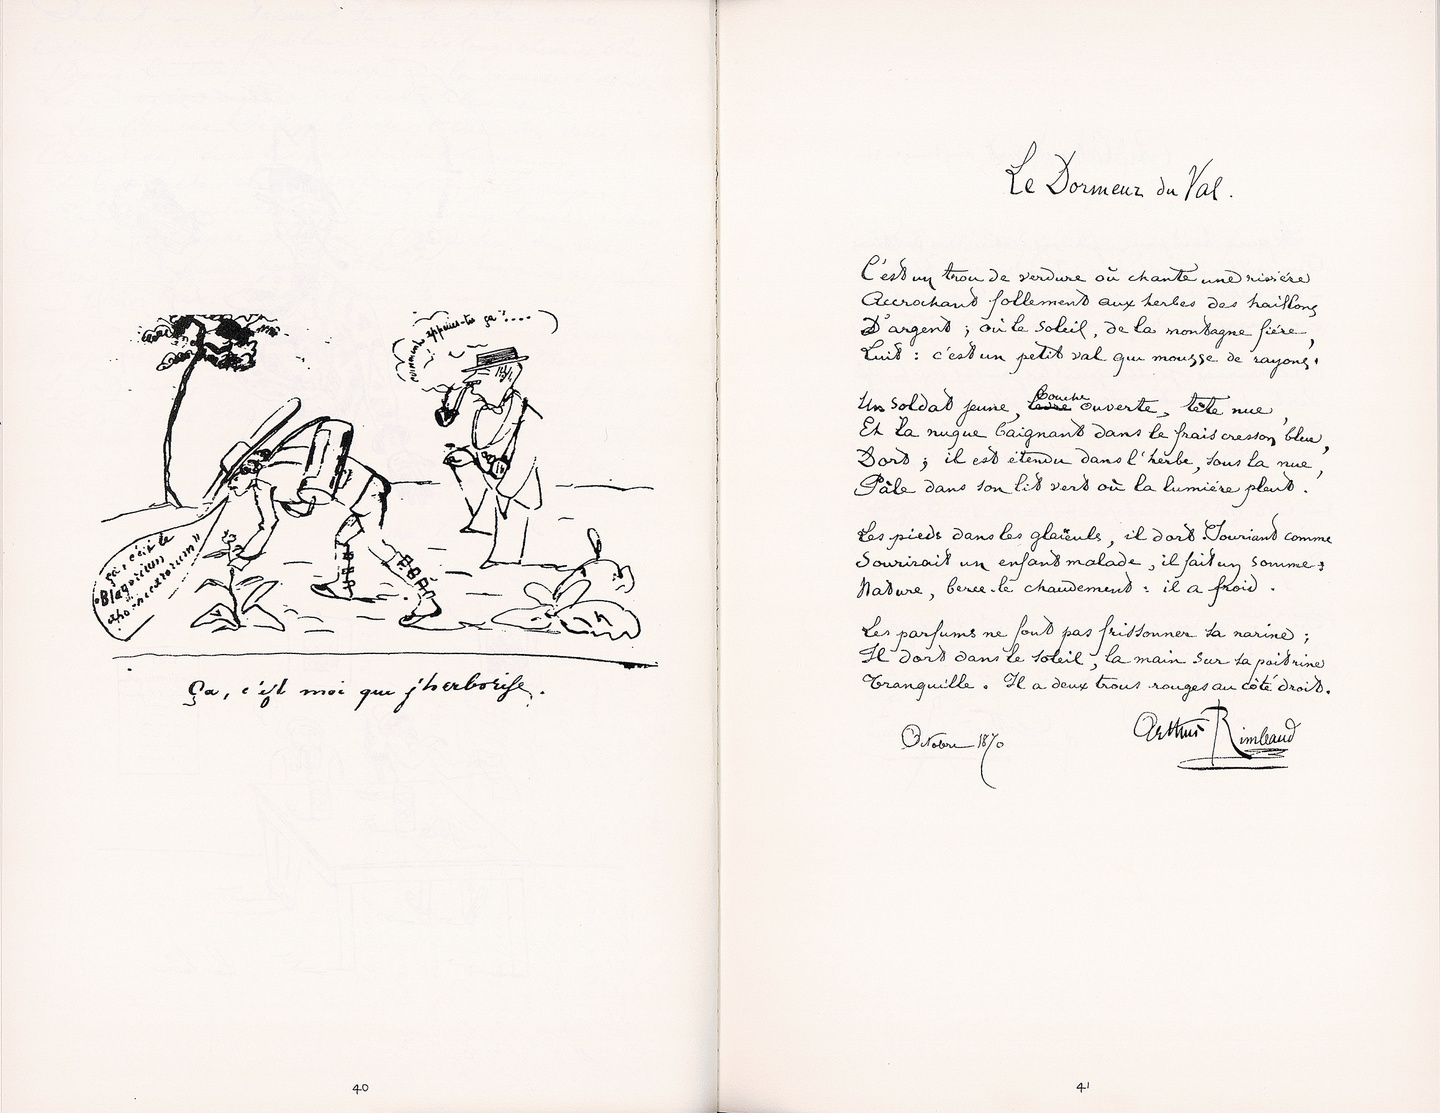 comment appelles-tu ça ?....
ça, c'est le
"Blagoricum
Ça, c'est moi que j'herborise.
40
Le Dormeur du Val.
C'est un trou de verdure où chante une rivière
Accrochant follement aux herbes des haillons
D'argent ; où le soleil, de la montagne fière,
Luit : c'est un petit val qui mousse de rayons.
Un soldat jeune, bouche ouverte, tête nue,
Et la nuque baignant dans le frais cresson bleu,
Dort ; il est étendu dans l'herbe, sous la nue,
Pâle dans son lit vert où la lumière pleut.
Les pieds dans les glaïeuls, il dort. Souriant comme
Sourirait un enfant malade, il fait un somme :
Nature, berce-le chaudement : il a froid.
Les parfums ne font pas frissonner sa narine ;
Il dort dans le soleil, la main sur sa poitrine
Tranquille. Il a deux trous rouges au côté droit.
Arthur Rimbaud
Octobre 1870
41